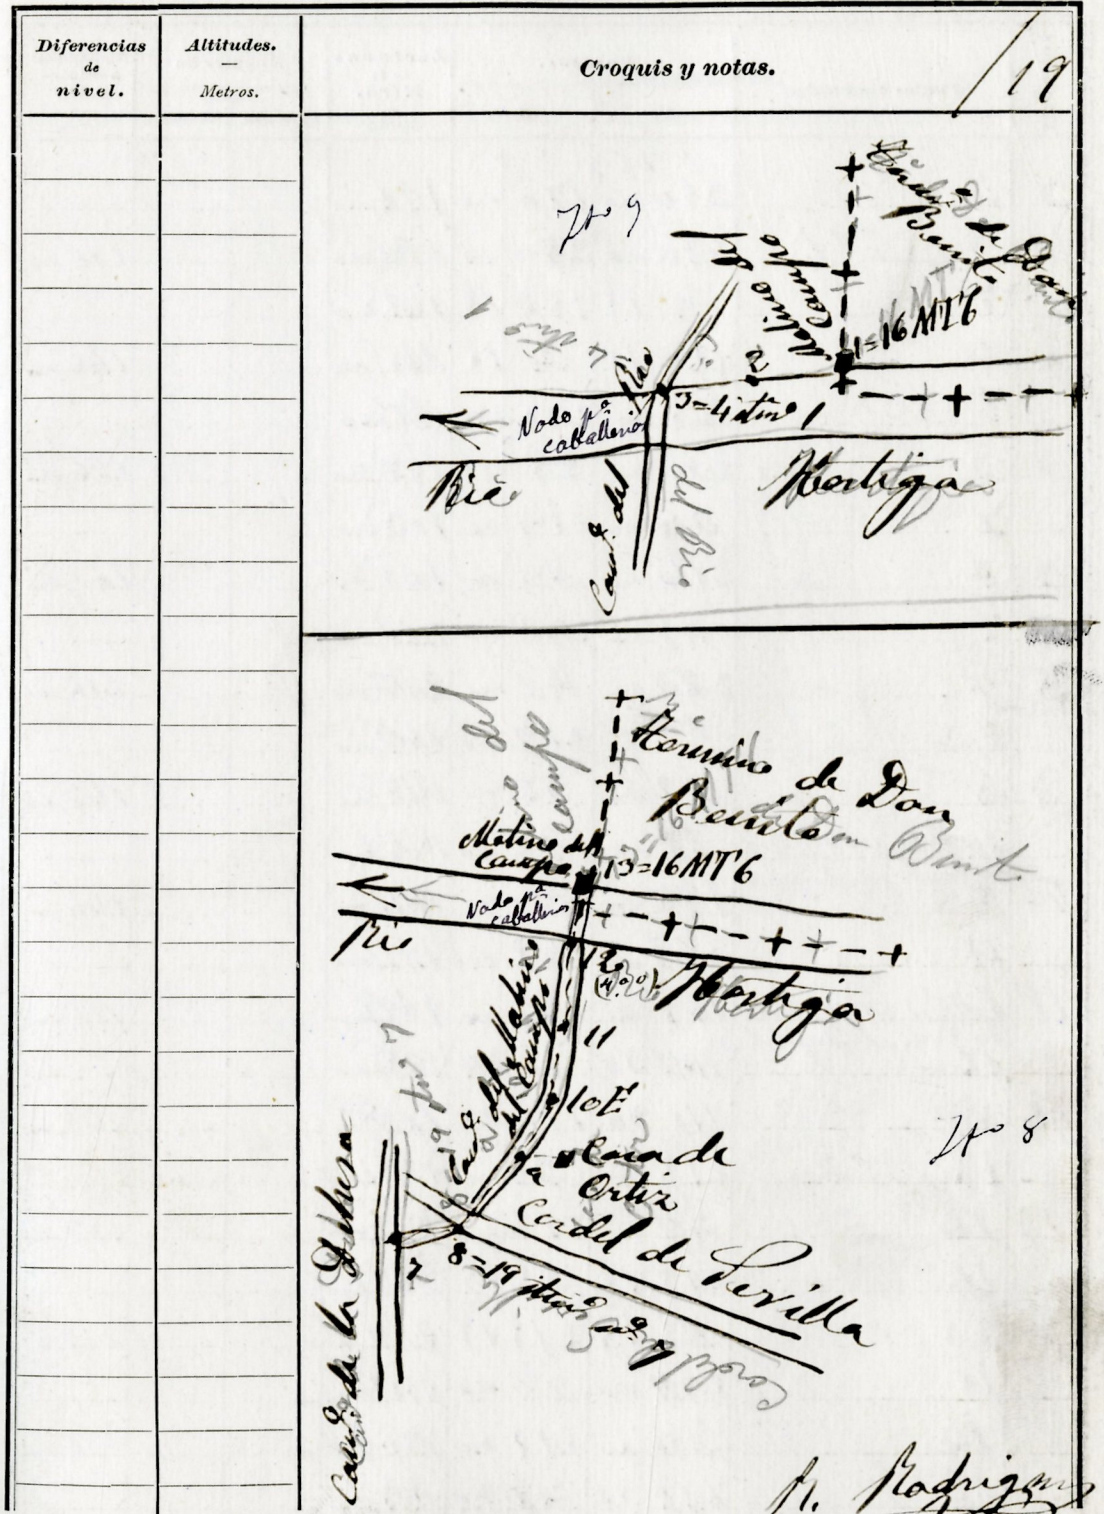 Diferencias
de
nivel.
Altitudes.
—
Metros.
Croquis y notas.
19
Ito 9
Término de Don
Benito
Molino del
Campo
1=16 MT6
2
3=4 itinº 1
4 itinº 1
Vado pª
caballerias
Rio
Camº del Rio
del Rio
Hortiga
Término de Don
Benito
Don Benito
Molino del
Campo
13=16 MT6
Vado pª
caballerias
Rio
12
Hortiga
11
10 E
Camº del Molino
del Campo
9
Casa de
Ortiz
Ito 8
Cordel de Sevilla
8=19 itinº nº 7
7
Camº de la Dehesa
R. Rodriguez